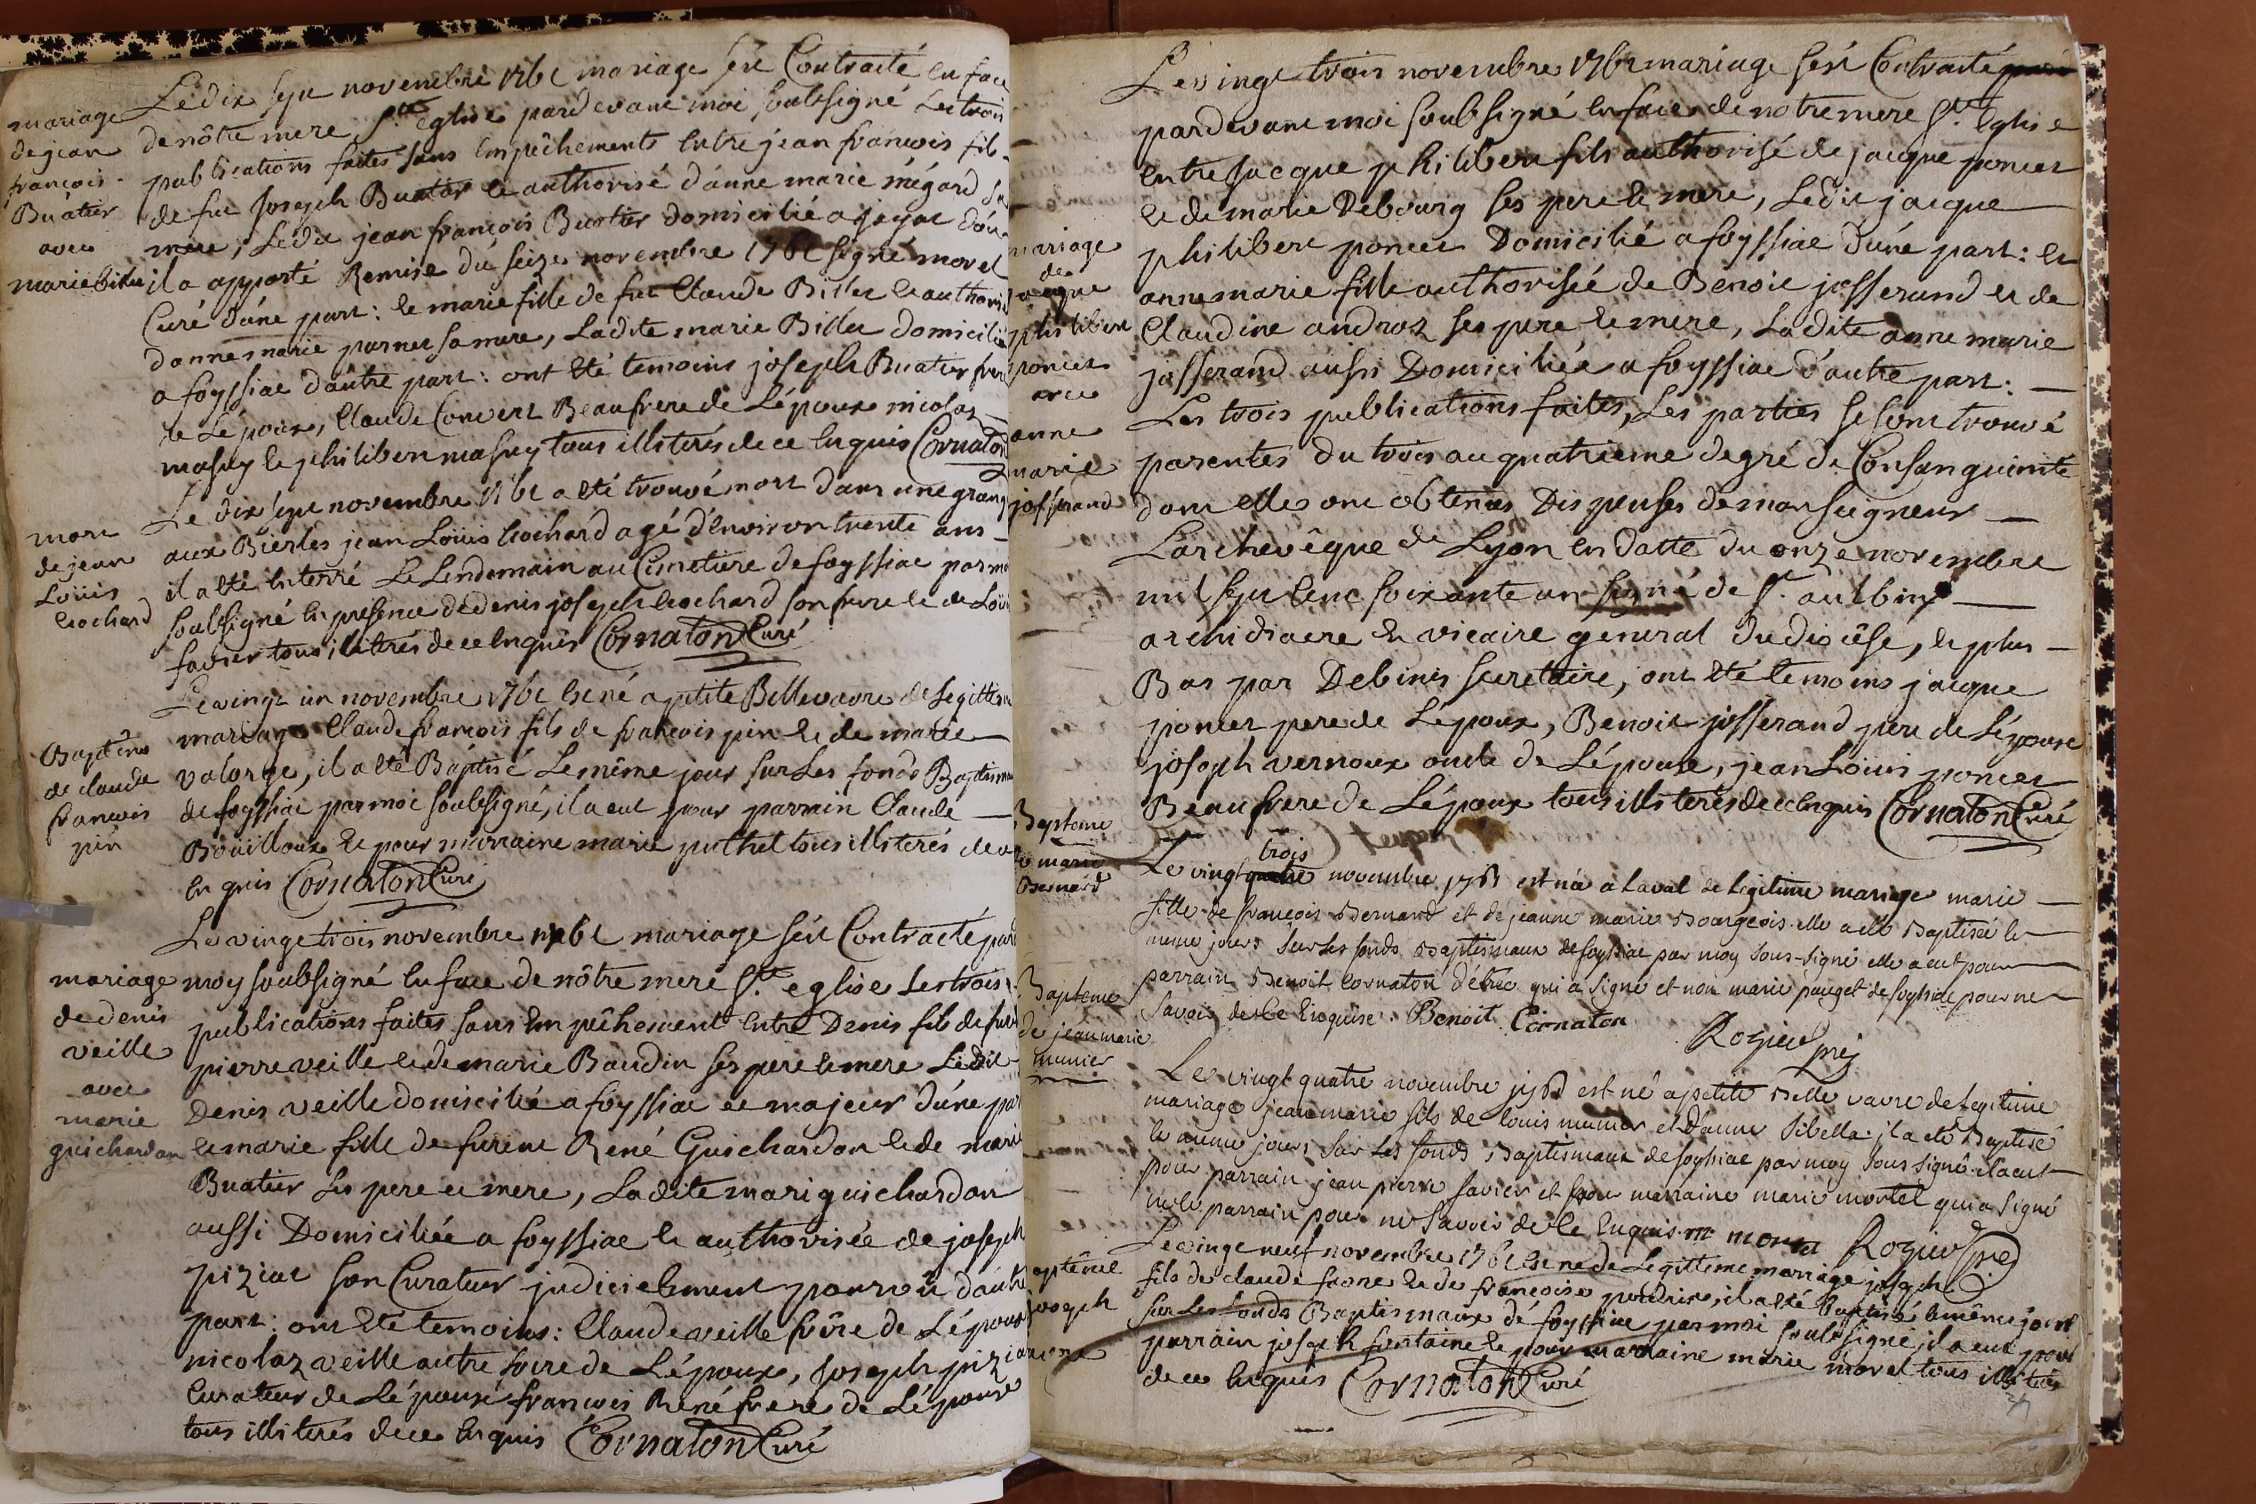 mariage
de jean
françois
Buatier
avec
marie billet
Le dix sept novembre 1761 mariage s'est Contracté en face
de nôtre mere Ste Eglise pardevant moi soubsigné Les trois
publications faites sans Empêchements Entre jean françois fils
de feu Joseph Buatier et authorisé d'anne marie mégard sa
mere, Ledit jean françois Buatier domicilié a jayat d'où
il a apporté Remise du seize novembre 1761 signé morel
Curé d'une part: et marie fille de feu Claude Billet et authorisé
d'anne marie parnet sa mere, Ladite marie Billet domiciliée
a foyssiac d'autre part: ont Eté temoins joseph Buatier frere
de L'époux, Claude Convert Beaufrere de L'époux nicolas
masuy et philibert masuy tous illiterés de ce Enquis Cornaton
mort
de jean
Loüis
Cochard
Le dix sept novembre 1761 a eté trouvé mort dans une grange
aux Bierles jean Loüis Cochard agé d'Environ trente ans
il a eté Enterré Le Lendemain au Cimetiere de foyssiac par moi
soubsigné En presence de denis joseph Cochard son frere et de Loüis
favier tous illiterés de ce Enquis Cornaton Curé
Baptême
de claude
françois
pin
Le vingt un novembre 1761 est né a petite Bellevavre de Legittime
mariage Claude françois fils de francois pin et de marie
valorge, il a eté Baptisé Le même jour sur Les fonds Baptismaux
de foyssiac par moi soubsigné, il a eut pour parrain Claude
Boüilloux et pour marraine marie puthet tous illiterés de ce
Enquis Cornaton Curé
mariage
de denis
veille
avec
marie
guichardon
Le vingt trois novembre 1761 mariage s'est Contracté pard
moy soubsigné En face de nôtre mere Ste eglise Les trois
publications faites sans Empêchement Entre Denis fils de feu
pierre veille et de marie Baudin ses pere et mere Ledit
Denis veille domicilié a foyssiac et majeur d'une part
et marie fille de furent René Guichardon et de marie
Buatier ses pere et mere, Ladite mari guichardon
aussi Domiciliée a foyssiac et authorisée de joseph
piziat son Curateur judiciellement pourvû d'autre
part: ont Eté temoins: Claude veille frère de L'époux
nicolaz veille autre frere de L'époux, Joseph piziat
Curateur de L'épouse françois René frere de L'épouse
tous illiterés de ce Enquis Cornaton Curé
mariage
de
jacque
philibert
poncet
avec
anne
marie
josserand
Le vingt trois novembre 1761 mariage s'est Contracté
pardevant moi soubsigné En face de notre mere Ste Eglise
Entre Jacque philibert fils authorisé de jacque poncet
et de marie Debourg ses pere et mere, Ledit jacque
philibert poncet Domicilié a foyssiac d'une part: et
anne marie fille authorisée de Benoit josserand et de
Claudine androz ses pere et mere, Ladite anne marie
josserand aussi Domiciliée a foyssiac d'autre part.
Les trois publications faites, Les parties se sont trouvé
parentes du trois au quatrieme degré de Consanguinité
dont elles ont obtenus Dispenses de monseigneur
L'archevêque de Lyon en datte du onze novembre
mil sept cent soixante un signé de St. aulbin
archidiacre et vicaire general du diocèse, et plus
Bas par Debinis secretaire, ont Eté temoins jacque
poncet pere de L'époux, Benoit josserand pere de L'épouse
joseph vernoux oncle de L'épouse, jean Loüis poncet
Beaufrere de L'époux tous illiterés de ce Enquis Cornaton Curé
Bapteme
de marie
Bernard
trois
Le vingt quatre novembre 1761 est née a Laval de legitime mariage marie
fille de françois Bernard et de jeanne marie Bourgeois. elle a eté Baptisée le
meme jours sur les fonds Baptismaux de foyssiac par moy sous-signé elle a eut pour
parrain Benoit Cornaton d'étrée qui a signé et non marie pauget de foyssiac pour ne
savoir de Ce Enquise. Benoit Cornaton
Rozier prê
Bapteme
de jean marie
munier
Le vingt quatre novembre 1761 est né a petite Belle vavre de Legitime
mariage jean marie fils de louis munier et d'anne sibelle. il a eté Baptisé
le meme jours sur Les fonds Baptismaux de foyssiac par moy sous signé il a eut
pour parrain jean pierre favier et pour marraine marie mortel qui a signé
ne le parrain pour ne savoir de Ce Enquis. m mortel Rozier prê
Baptême
joseph
Le vingt neuf novembre 1761 est né de Legittime mariage joseph
fils de claude farone et de françoise perdrix, il a eté baptisé le même jour
sur Les fonds Baptismaux de foyssiac par moi soubsigné, il a eut pour
parrain joseph fontaine et pour marraine marie morel tous illiterés
de ce Enquis Cornaton Curé